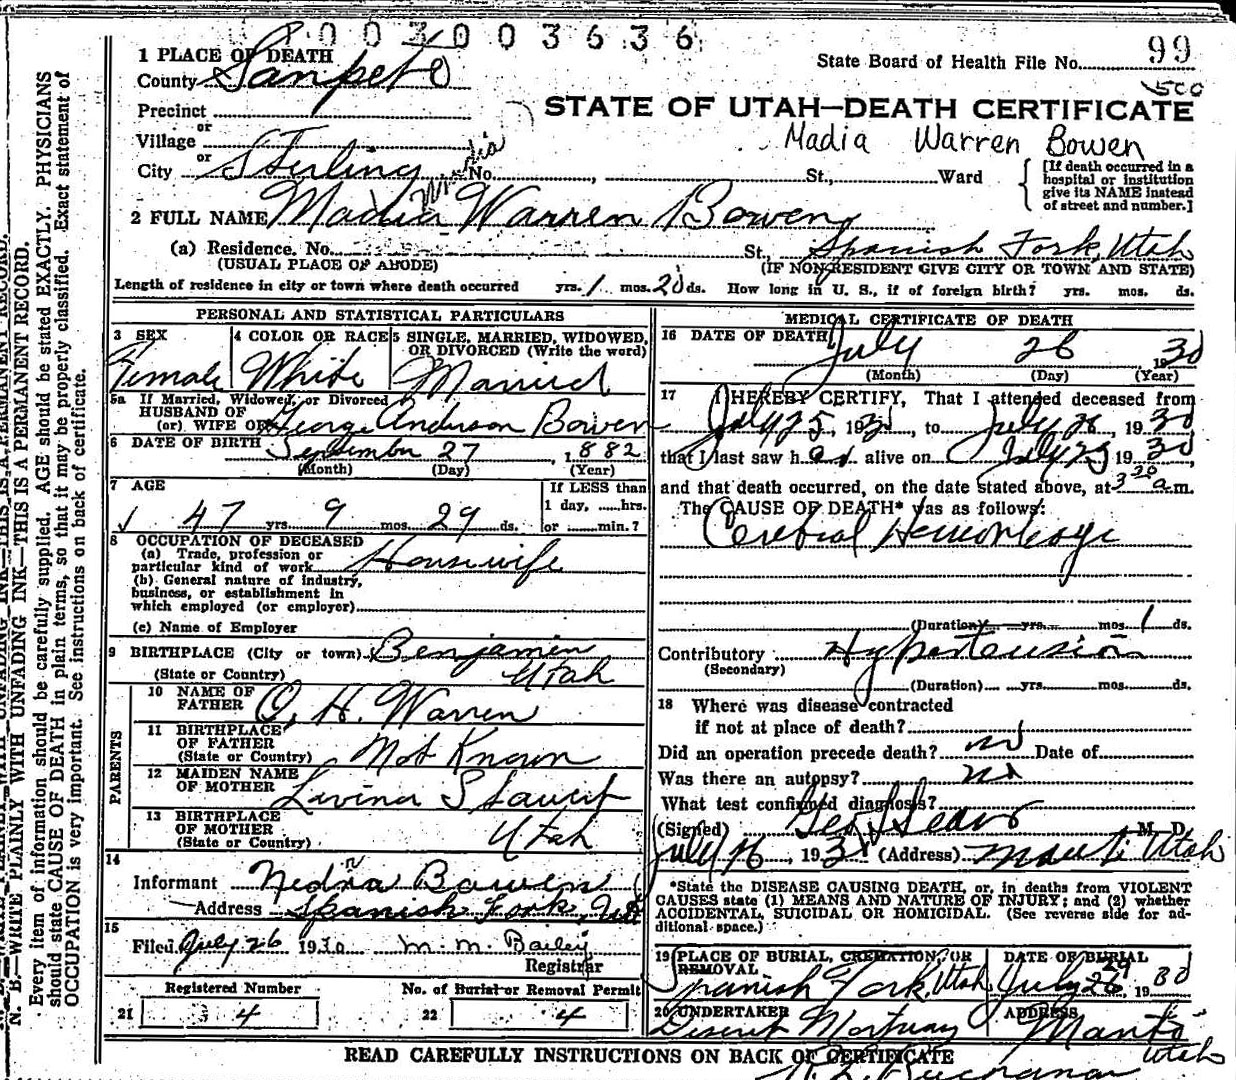 003003636
1 PLACE OF DEATH
State Board of Health File No. 99
County Sanpete
500
Precinct
STATE OF UTAH—DEATH CERTIFICATE
or
Village
Madia Warren Bowen
or
City Sterling No. , St., Ward
[If death occurred in a hospital or institution give its NAME instead of street and number.]
2 FULL NAME Madia Warren Bowen
(a) Residence. No. St., Spanish Fork, Utah
(USUAL PLACE OF ABODE) (IF NON-RESIDENT GIVE CITY OR TOWN AND STATE)
Length of residence in city or town where death occurred yrs. 1 mos. 20 ds. How long in U. S., if of foreign birth? yrs. mos. ds.
PERSONAL AND STATISTICAL PARTICULARS
3 SEX
Female
4 COLOR OR RACE
White
5 SINGLE, MARRIED, WIDOWED, OR DIVORCED (Write the word)
Married
5a If Married, Widowed, or Divorced
HUSBAND OF
(or) WIFE OF George Anderson Bowen
6 DATE OF BIRTH September 27, 1882
(Month) (Day) (Year)
7 AGE
47 yrs. 9 mos. 29 ds.
If LESS than
1 day, ......hrs.
or ......min.?
8 OCCUPATION OF DECEASED
(a) Trade, profession or
particular kind of work Housewife
(b) General nature of industry,
business, or establishment in
which employed (or employer)
(c) Name of Employer
9 BIRTHPLACE (City or town) Benjamin
(State or Country) Utah
PARENTS
10 NAME OF
FATHER O. H. Warren
11 BIRTHPLACE
OF FATHER
(State or Country) Not Known
12 MAIDEN NAME
OF MOTHER Lovina
13 BIRTHPLACE
OF MOTHER
(State or Country) Utah
14
Informant Nedra Bowen
Address Spanish Fork, Ut
15
Filed July 26 1930 M. M. Bailey
Registrar
Registered Number No. of Burial or Removal Permit
21 4 22 4
MEDICAL CERTIFICATE OF DEATH
16 DATE OF DEATH July 26 1930
(Month) (Day) (Year)
17 I HEREBY CERTIFY, That I attended deceased from
July 25, 1930, to July 26, 1930
that I last saw her alive on July 25 1930,
and that death occurred, on the date stated above, at 3 20 a.m.
The CAUSE OF DEATH* was as follows:
Cerebral Hemorrhage
(Duration) yrs. mos. 1 ds.
Contributory Hypertension
(Secondary)
(Duration) yrs. mos. ds.
18 Where was disease contracted
if not at place of death?
Did an operation precede death? no Date of
Was there an autopsy? no
What test confirmed diagnosis?
(Signed) Geo. L. Sears M. D.
July 26, 1930 (Address) Manti Utah
*State the DISEASE CAUSING DEATH, or, in deaths from VIOLENT
CAUSES state (1) MEANS AND NATURE OF INJURY; and (2) whether
ACCIDENTAL, SUICIDAL OR HOMICIDAL. (See reverse side for ad-
ditional space.)
19 PLACE OF BURIAL, CREMATION, OR
REMOVAL
Spanish Fork, Utah
DATE OF BURIAL
July 29, 1930
20 UNDERTAKER
Deseret Mortuary
ADDRESS
Manti
Utah
READ CAREFULLY INSTRUCTIONS ON BACK OF CERTIFICATE
Buchanan
N. B.—WRITE PLAINLY WITH UNFADING INK—THIS IS A PERMANENT RECORD.
Every item of information should be carefully supplied. AGE should be stated EXACTLY. PHYSICIANS
should state CAUSE OF DEATH in plain terms, so that it may be properly classified. Exact statement of
OCCUPATION is very important. See instructions on back of certificate.